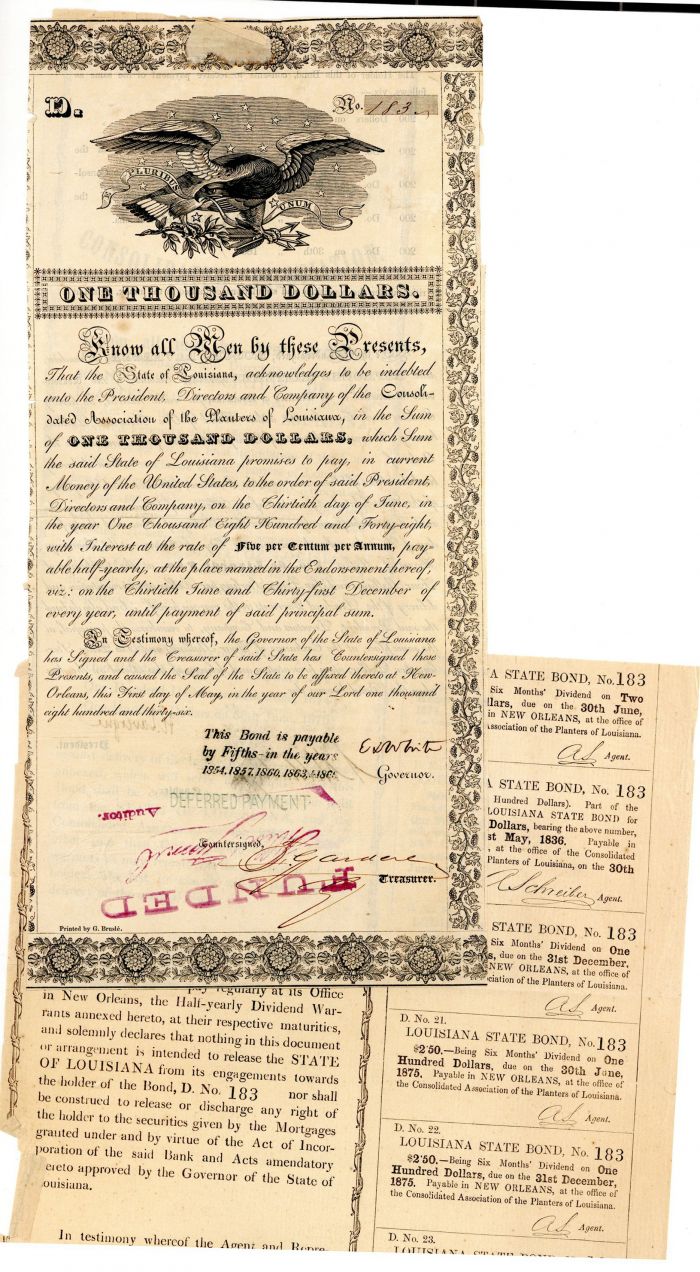 D.
No. 183.
PLURIBUS
UNUM
ONE THOUSAND DOLLARS.
Know all Men by these Presents,
That the State of Louisiana, acknowledges to be indebted
unto the President, Directors and Company of the Consoli-
dated Association of the Planters of Louisiana, in the Sum
of ONE THOUSAND DOLLARS, which Sum
the said State of Louisiana promises to pay, in current
Money of the United States, to the order of said President,
Directors and Company, on the Thirtieth day of June, in
the year One Thousand Eight Hundred and Forty-eight,
with Interest at the rate of Five per Centum per Annum, pay-
able half-yearly, at the place named in the Endorsement hereof,
viz: on the Thirtieth June and Thirty-first December of
every year, until payment of said principal sum.
In Testimony whereof, the Governor of the State of Louisiana
has Signed and the Treasurer of said State has Countersigned these
Presents, and caused the Seal of the State to be affixed thereto at New-
Orleans, this First day of May, in the year of our Lord one thousand
eight hundred and thirty-six.
This Bond is payable
by Fifths in the years
1854, 1857, 1860, 1863,
E D White
Governor.
DEFERRED PAYMENT
Auditor.
Countersigned,
Gardere
Treasurer.
FUNDED
Printed by G. Bruslé.
in New Orleans, the Half-yearly Dividend War-
rants annexed hereto, at their respective maturities,
and solemnly declares that nothing in this document
or arrangement is intended to release the STATE
OF LOUISIANA from its engagements towards
the holder of the Bond, D. No. 183 nor shall
be construed to release or discharge any right of
the holder to the securities given by the Mortgages
granted under and by virtue of the Act of Incor-
poration of the said Bank and Acts amendatory
hereto approved by the Governor of the State of
ouisiana.
In testimony whereof the Agent and Repre-
A STATE BOND, No. 183
Six Months' Dividend on Two
llars, due on the 30th June,
in NEW ORLEANS, at the office of
Association of the Planters of Louisiana.
A.S. Agent.
A STATE BOND, No. 183
Hundred Dollars). Part of the
LOUISIANA STATE BOND for
Dollars, bearing the above number,
st May, 1836. Payable in
, at the office of the Consolidated
Planters of Louisiana, on the 30th
Schreiber Agent.
STATE BOND, No. 183
Six Months' Dividend on One
s, due on the 31st December,
NEW ORLEANS, at the office of
ciation of the Planters of Louisiana.
A.S. Agent.
D. No. 21.
LOUISIANA STATE BOND, No. 183
$2·50.—Being Six Months' Dividend on One
Hundred Dollars, due on the 30th June,
1875. Payable in NEW ORLEANS, at the office of
the Consolidated Association of the Planters of Louisiana.
A.S. Agent.
D. No. 22.
LOUISIANA STATE BOND, No. 183
$2·50.—Being Six Months' Dividend on One
Hundred Dollars, due on the 31st December,
1875. Payable in NEW ORLEANS, at the office of
the Consolidated Association of the Planters of Louisiana.
A.S. Agent.
D. No. 23.
LOUISIANA STATE BOND, No.